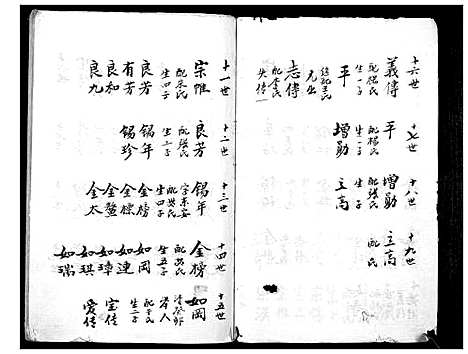 十六世
義傳
配楊氏
生一子
平
繼配王氏
兄出
志傳
配李氏
失傳
十七世
平
配楊氏
生一子
增勛
十八世
增勛
配張氏
生一子
立高
十九世
立高
配氏
十一世
宗惟
配朱氏
生四子
良芳
有芳
良和
良九
十二世
良芳
配張氏
生二子
錫年
錫珍
十三世
錫年
字東安
配洪氏
生四子
金榜
金標
金鰲
金太
十四世
金榜
配氏
生五子
如岡
如連
如璋
如琪
如瑞
十五世
如岡
清癸卯
舉人
生二子
宝传
愛传